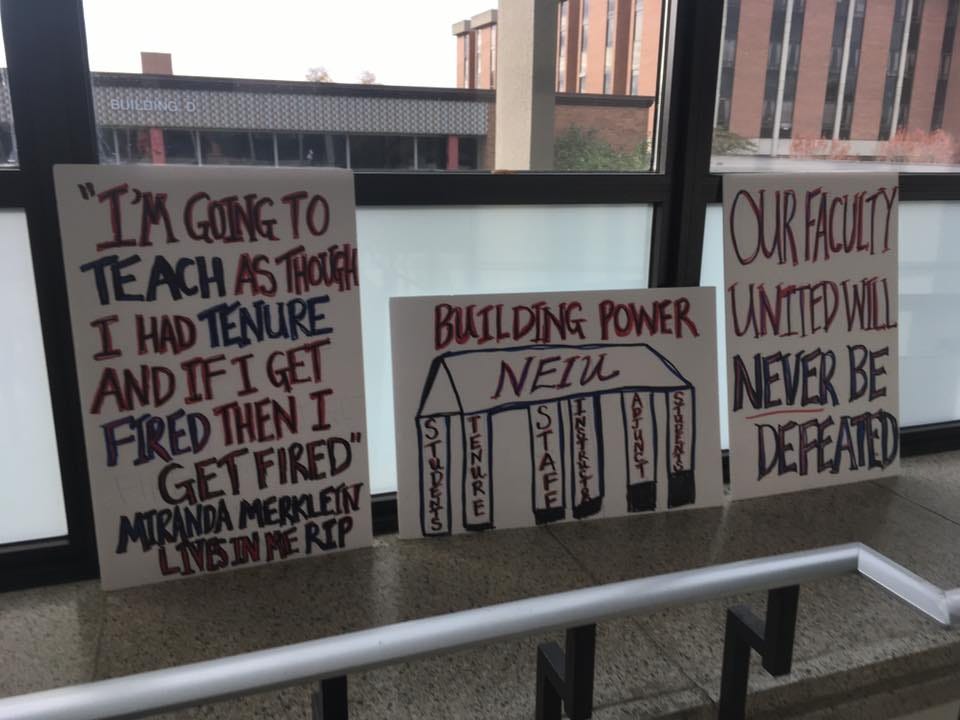 BUILDING D
"I'M GOING TO
TEACH AS THOUGH
I HAD TENURE
AND IF I GET
FIRED THEN I
GET FIRED"
MIRANDA MERKLEIN
LIVES IN ME RIP
BUILDING POWER
NEIU
STUDENTS
TENURE
STAFF
INSTRCTR
ADJUNCT
STUDENTS
OUR FACULTY
UNITED WILL
NEVER BE
DEFEATED